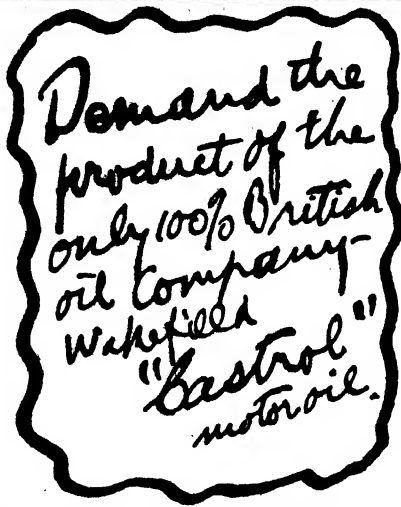 Demand the
product of the
only 100% British
oil Company—
Wakefield
"Castrol"
motor oil.